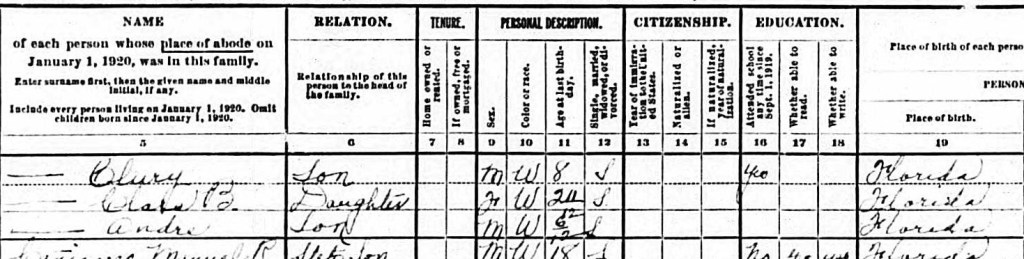 NAME
of each person whose place of abode on
January 1, 1920, was in this family.
Enter surname first, then the given name and middle
initial, if any.
Include every person living on January 1, 1920. Omit
children born since January 1, 1920.
RELATION.
Relationship of this
person to the head of
the family.
TENURE.
Home owned or
rented.
If owned, free or
mortgaged.
PERSONAL DESCRIPTION.
Sex.
Color or race.
Age at last birth-
day.
Single, married,
widowed, or di-
vorced.
CITIZENSHIP.
Year of immigra-
tion to the Unit-
ed States.
Naturalized or
alien.
If naturalized,
year of natural-
ization.
EDUCATION.
Attended school
any time since
Sept. 1, 1919.
Whether able to
read.
Whether able to
write.
Place of birth of each perso
PERSON
Place of birth.
5 6 7 8 9 10 11 12 13 14 15 16 17 18 19
Son M W 8 S Florida
Clara B. Daughter F W S Florida
Andre Son M W S Florida
Manuel R Step Son M W 18 S No Florida